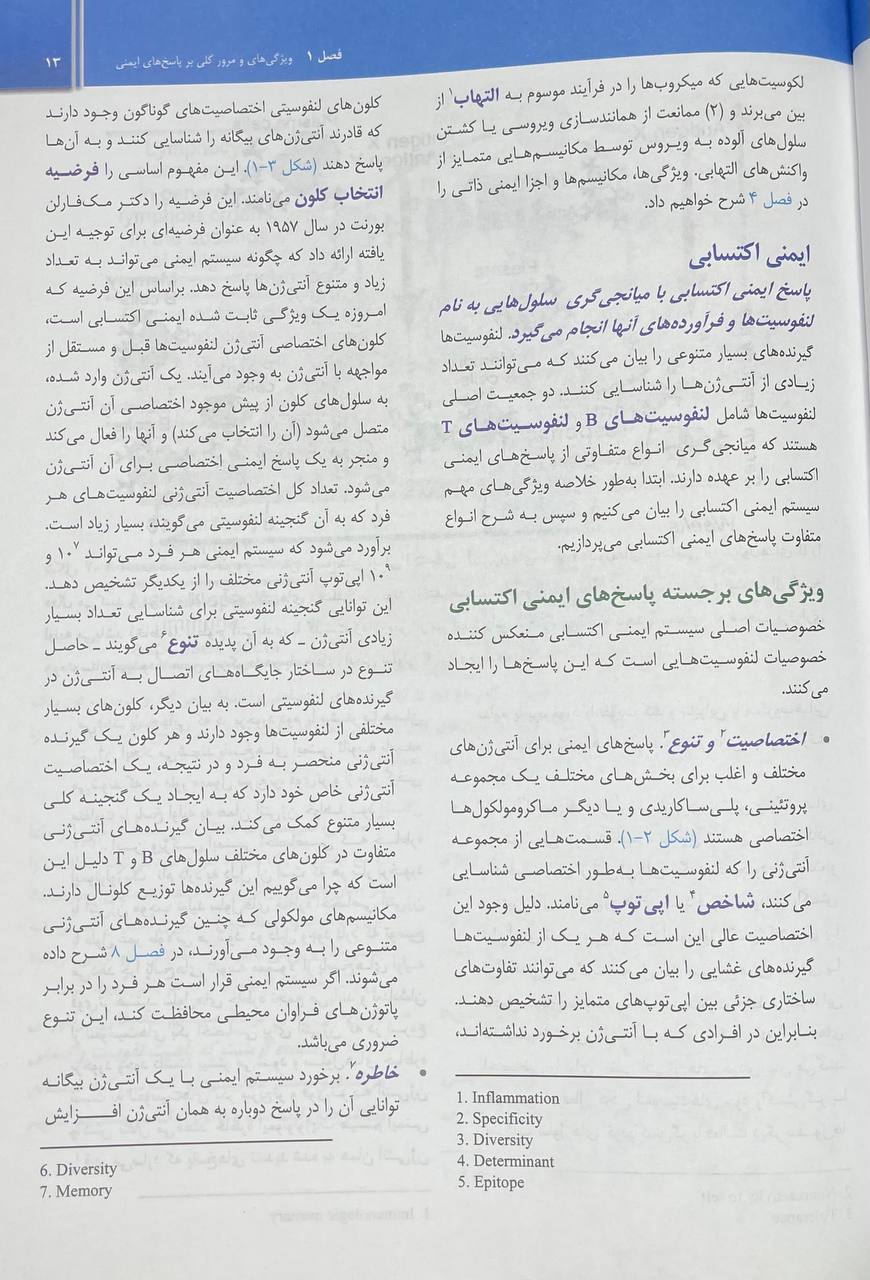 فصل ۱ ویژگی‌های و مرور کلی بر پاسخ‌های ایمنی ۱۳
لکوسیت‌هایی که میکروب‌ها را در فرآیند موسوم به التهاب۱ از
بین می‌برند و (۲) ممانعت از همانندسازی ویروسی یا کشتن
سلول‌های آلوده به ویروس توسط مکانیسم‌هایی متمایز از
واکنش‌های التهابی. ویژگی‌ها، مکانیسم‌ها و اجزا ایمنی ذاتی را
در فصل ۴ شرح خواهیم داد.
ایمنی اکتسابی
پاسخ ایمنی اکتسابی با میانجی‌گری سلول‌هایی به نام
لنفوسیت‌ها و فرآورده‌های آنها انجام می‌گیرد. لنفوسیت‌ها
گیرنده‌های بسیار متنوعی را بیان می‌کنند که می‌توانند تعداد
زیادی از آنتی‌ژن‌ها را شناسایی کنند. دو جمعیت اصلی
لنفوسیت‌ها شامل لنفوسیت‌های B و لنفوسیت‌های T
هستند که میانجی‌گری انواع متفاوتی از پاسخ‌های ایمنی
اکتسابی را بر عهده دارند. ابتدا به‌طور خلاصه ویژگی‌های مهم
سیستم ایمنی اکتسابی را بیان می‌کنیم و سپس به شرح انواع
متفاوت پاسخ‌های ایمنی اکتسابی می‌پردازیم.
ویژگی‌های برجسته پاسخ‌های ایمنی اکتسابی
خصوصیات اصلی سیستم ایمنی اکتسابی منعکس کننده
خصوصیات لنفوسیت‌هایی است که این پاسخ‌ها را ایجاد
می‌کنند.
• اختصاصیت۲ و تنوع۳. پاسخ‌های ایمنی برای آنتی‌ژن‌های
مختلف و اغلب برای بخش‌های مختلف یک مجموعه
پروتئینی، پلی‌ساکاریدی و یا دیگر ماکرومولکول‌ها
اختصاصی هستند (شکل ۲-۱). قسمت‌هایی از مجموعه
آنتی‌ژنی را که لنفوسیت‌ها به‌طور اختصاصی شناسایی
می‌کنند، شاخص۴ یا اپی‌توپ۵ می‌نامند. دلیل وجود این
اختصاصیت عالی این است که هر یک از لنفوسیت‌ها
گیرنده‌های غشایی را بیان می‌کنند که می‌توانند تفاوت‌های
ساختاری جزئی بین اپی‌توپ‌های متمایز را تشخیص دهند.
بنابراین در افرادی که با آنتی‌ژن برخورد نداشته‌اند،
1. Inflammation
2. Specificity
3. Diversity
4. Determinant
5. Epitope
کلون‌های لنفوسیتی اختصاصیت‌های گوناگون وجود دارند
که قادرند آنتی‌ژن‌های بیگانه را شناسایی کنند و به آن‌ها
پاسخ دهند (شکل ۳-۱). این مفهوم اساسی را فرضیه
انتخاب کلون می‌نامند. این فرضیه را دکتر مک‌فارلن
بورنت در سال ۱۹۵۷ به عنوان فرضیه‌ای برای توجیه این
یافته ارائه داد که چگونه سیستم ایمنی می‌تواند به تعداد
زیاد و متنوع آنتی‌ژن‌ها پاسخ دهد. براساس این فرضیه که
امروزه یک ویژگی ثابت شده ایمنی اکتسابی است،
کلون‌های اختصاصی آنتی‌ژن لنفوسیت‌ها قبل و مستقل از
مواجهه با آنتی‌ژن به وجود می‌آیند. یک آنتی‌ژن وارد شده،
به سلول‌های کلون از پیش موجود اختصاصی آن آنتی‌ژن
متصل می‌شود (آن را انتخاب می‌کند) و آنها را فعال می‌کند
و منجر به یک پاسخ ایمنی اختصاصی برای آن آنتی‌ژن
می‌شود. تعداد کل اختصاصیت آنتی‌ژنی لنفوسیت‌های هر
فرد که به آن گنجینه لنفوسیتی می‌گویند، بسیار زیاد است.
برآورد می‌شود که سیستم ایمنی هر فرد می‌تواند ۱۰^۷ و
۱۰^۹ اپی‌توپ آنتی‌ژنی مختلف را از یکدیگر تشخیص دهد.
این توانایی گنجینه لنفوسیتی برای شناسایی تعداد بسیار
زیادی آنتی‌ژن ـ که به آن پدیده تنوع۶ می‌گویند ـ حاصل
تنوع در ساختار جایگاه‌های اتصال به آنتی‌ژن در
گیرنده‌های لنفوسیتی است. به بیان دیگر، کلون‌های بسیار
مختلفی از لنفوسیت‌ها وجود دارند و هر کلون یک گیرنده
آنتی‌ژنی منحصر به فرد و در نتیجه، یک اختصاصیت
آنتی‌ژنی خاص خود دارد که به ایجاد یک گنجینه کلی
بسیار متنوع کمک می‌کند. بیان گیرنده‌های آنتی‌ژنی
متفاوت در کلون‌های مختلف سلول‌های B و T دلیل این
است که چرا می‌گوییم این گیرنده‌ها توزیع کلونال دارند.
مکانیسم‌های مولکولی که چنین گیرنده‌های آنتی‌ژنی
متنوعی را به وجود می‌آورند، در فصل ۸ شرح داده
می‌شوند. اگر سیستم ایمنی قرار است هر فرد را در برابر
پاتوژن‌های فراوان محیطی محافظت کند، این تنوع
ضروری می‌باشد.
• خاطره۷. برخورد سیستم ایمنی با یک آنتی‌ژن بیگانه
توانایی آن را در پاسخ دوباره به همان آنتی‌ژن افزایش
6. Diversity
7. Memory